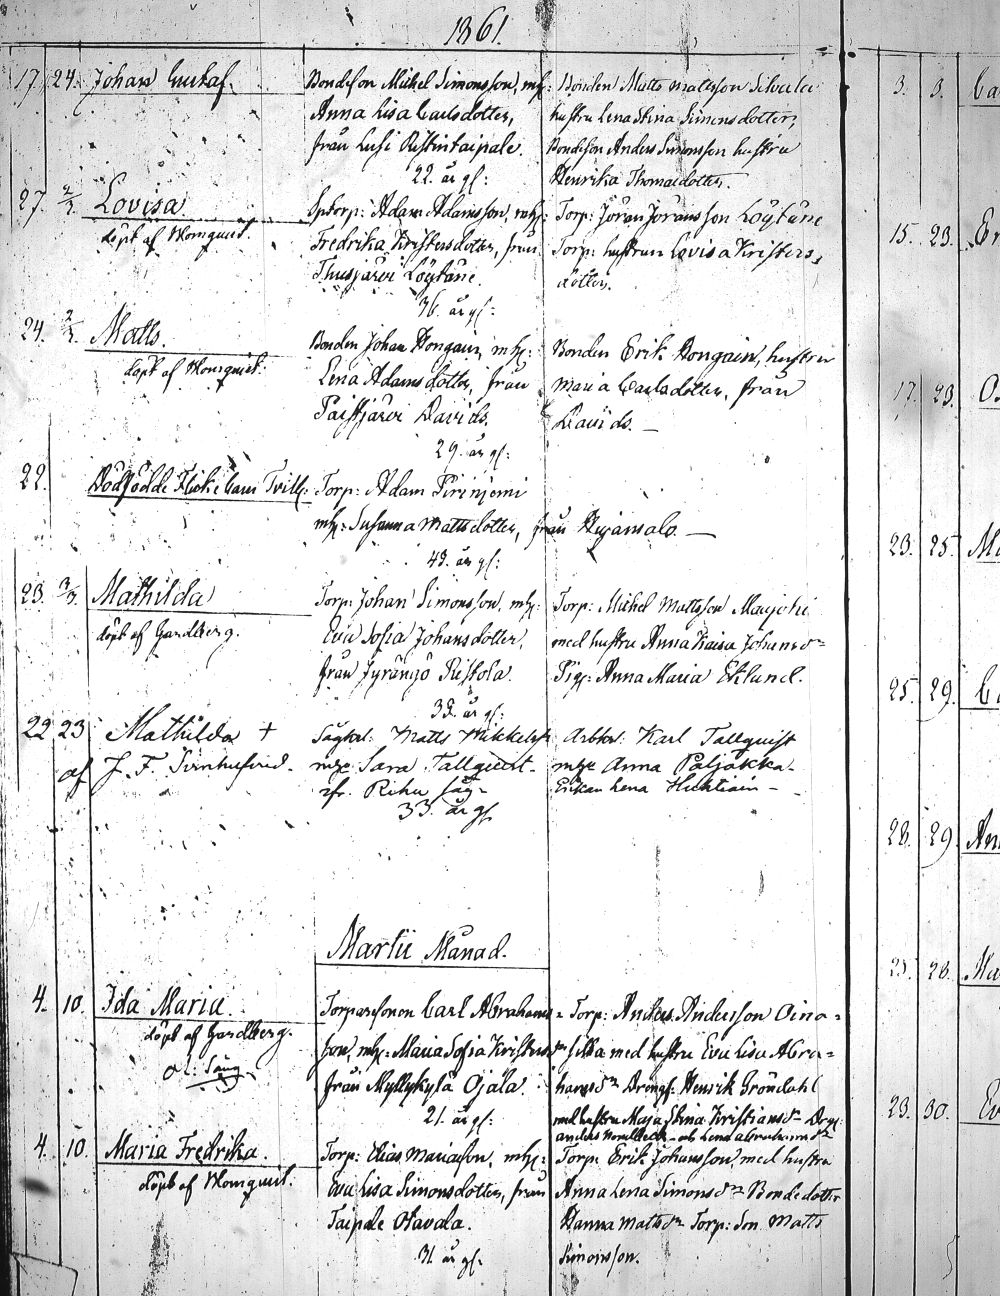 1861.
17. 24. Johan Gustaf. Bondeson Michel Simonsson, mh: Bonden Matts Mattsson
Anna Lisa Carlsdotter, hustru Lena Stina Simonsdotter,
från Lusi Ristintaipale. Bondeson Anders Simonsson hustru
22. år gl: Henrika Thomasdotter.
27. 2/3. Lovisa. Torp: Adam Adamsson, mh: Torp: Jöran Jöransson Löytäne
döpt af Blomquist. Fredrika Kristersdotter, från Torp: hustrun Lovisa Kristers-
Löytäne. dotter.
36. år gl:
24. 2/3. Matts. Bonden Johan Hongain, mh: Bonden Erik Hongain, hustru
döpt af Blomquist. Lena Adamsdotter, från Maria Carlsdotter, från
Paistjärvi Davids. Davids. —
29. år gl:
22. Dödfödde Flickebarn Tvill: Torp: Adam Pirinjemi
mh: Susanna Mattsdotter, från Hujansalo. —
43. år gl:
23. 3/3. Mathilda Torp: Johan Simonsson, mh: Torp: Michel Mattsson
döpt af Gardberg. Eva Sofia Johansdotter, med hustru Anna Kaisa Johansdr
från Jyränjö Ristola. Pig: Anna Maria Eklund.
33. år gl:
22 23 Mathilda + Sågkrl: Matts Mikkelss Arbkrl: Karl Tallqvist
af J. F. Svinhufvud. mh Sara Tallqvist Anna Paljakka
Lena
33. år gl
Martii Månad.
4. 10. Ida Maria. Torparesonen Carl Abrahams= Torp: Anders Andersson Oino=
döpt af Gardberg. son, mh: Maria Sofia Kristersdr med hustru Eva Lisa Abra=
från Myllykylä Ojala. hamsdr Dreng: Henrik Gröndahl
21. år gl: med hustru Maja Stina Kristiansdr
Anders och Lena Abrahamsdr
4. 10. Maria Fredrika. Torp: Elias Mariasson, mh: Torp: Erik Johansson, med hustru
döpt af Blomquist. Eva Lisa Simonsdotter, från Anna Lena Simonsdr Bondedotter
Taipale Otavala. Hanna Mattsdr Torp: Son Matts
31. år gl: Simonsson.
3. 3.
15. 23.
17. 23.
23. 25.
25. 29.
28. 29.
28.
23. 30.